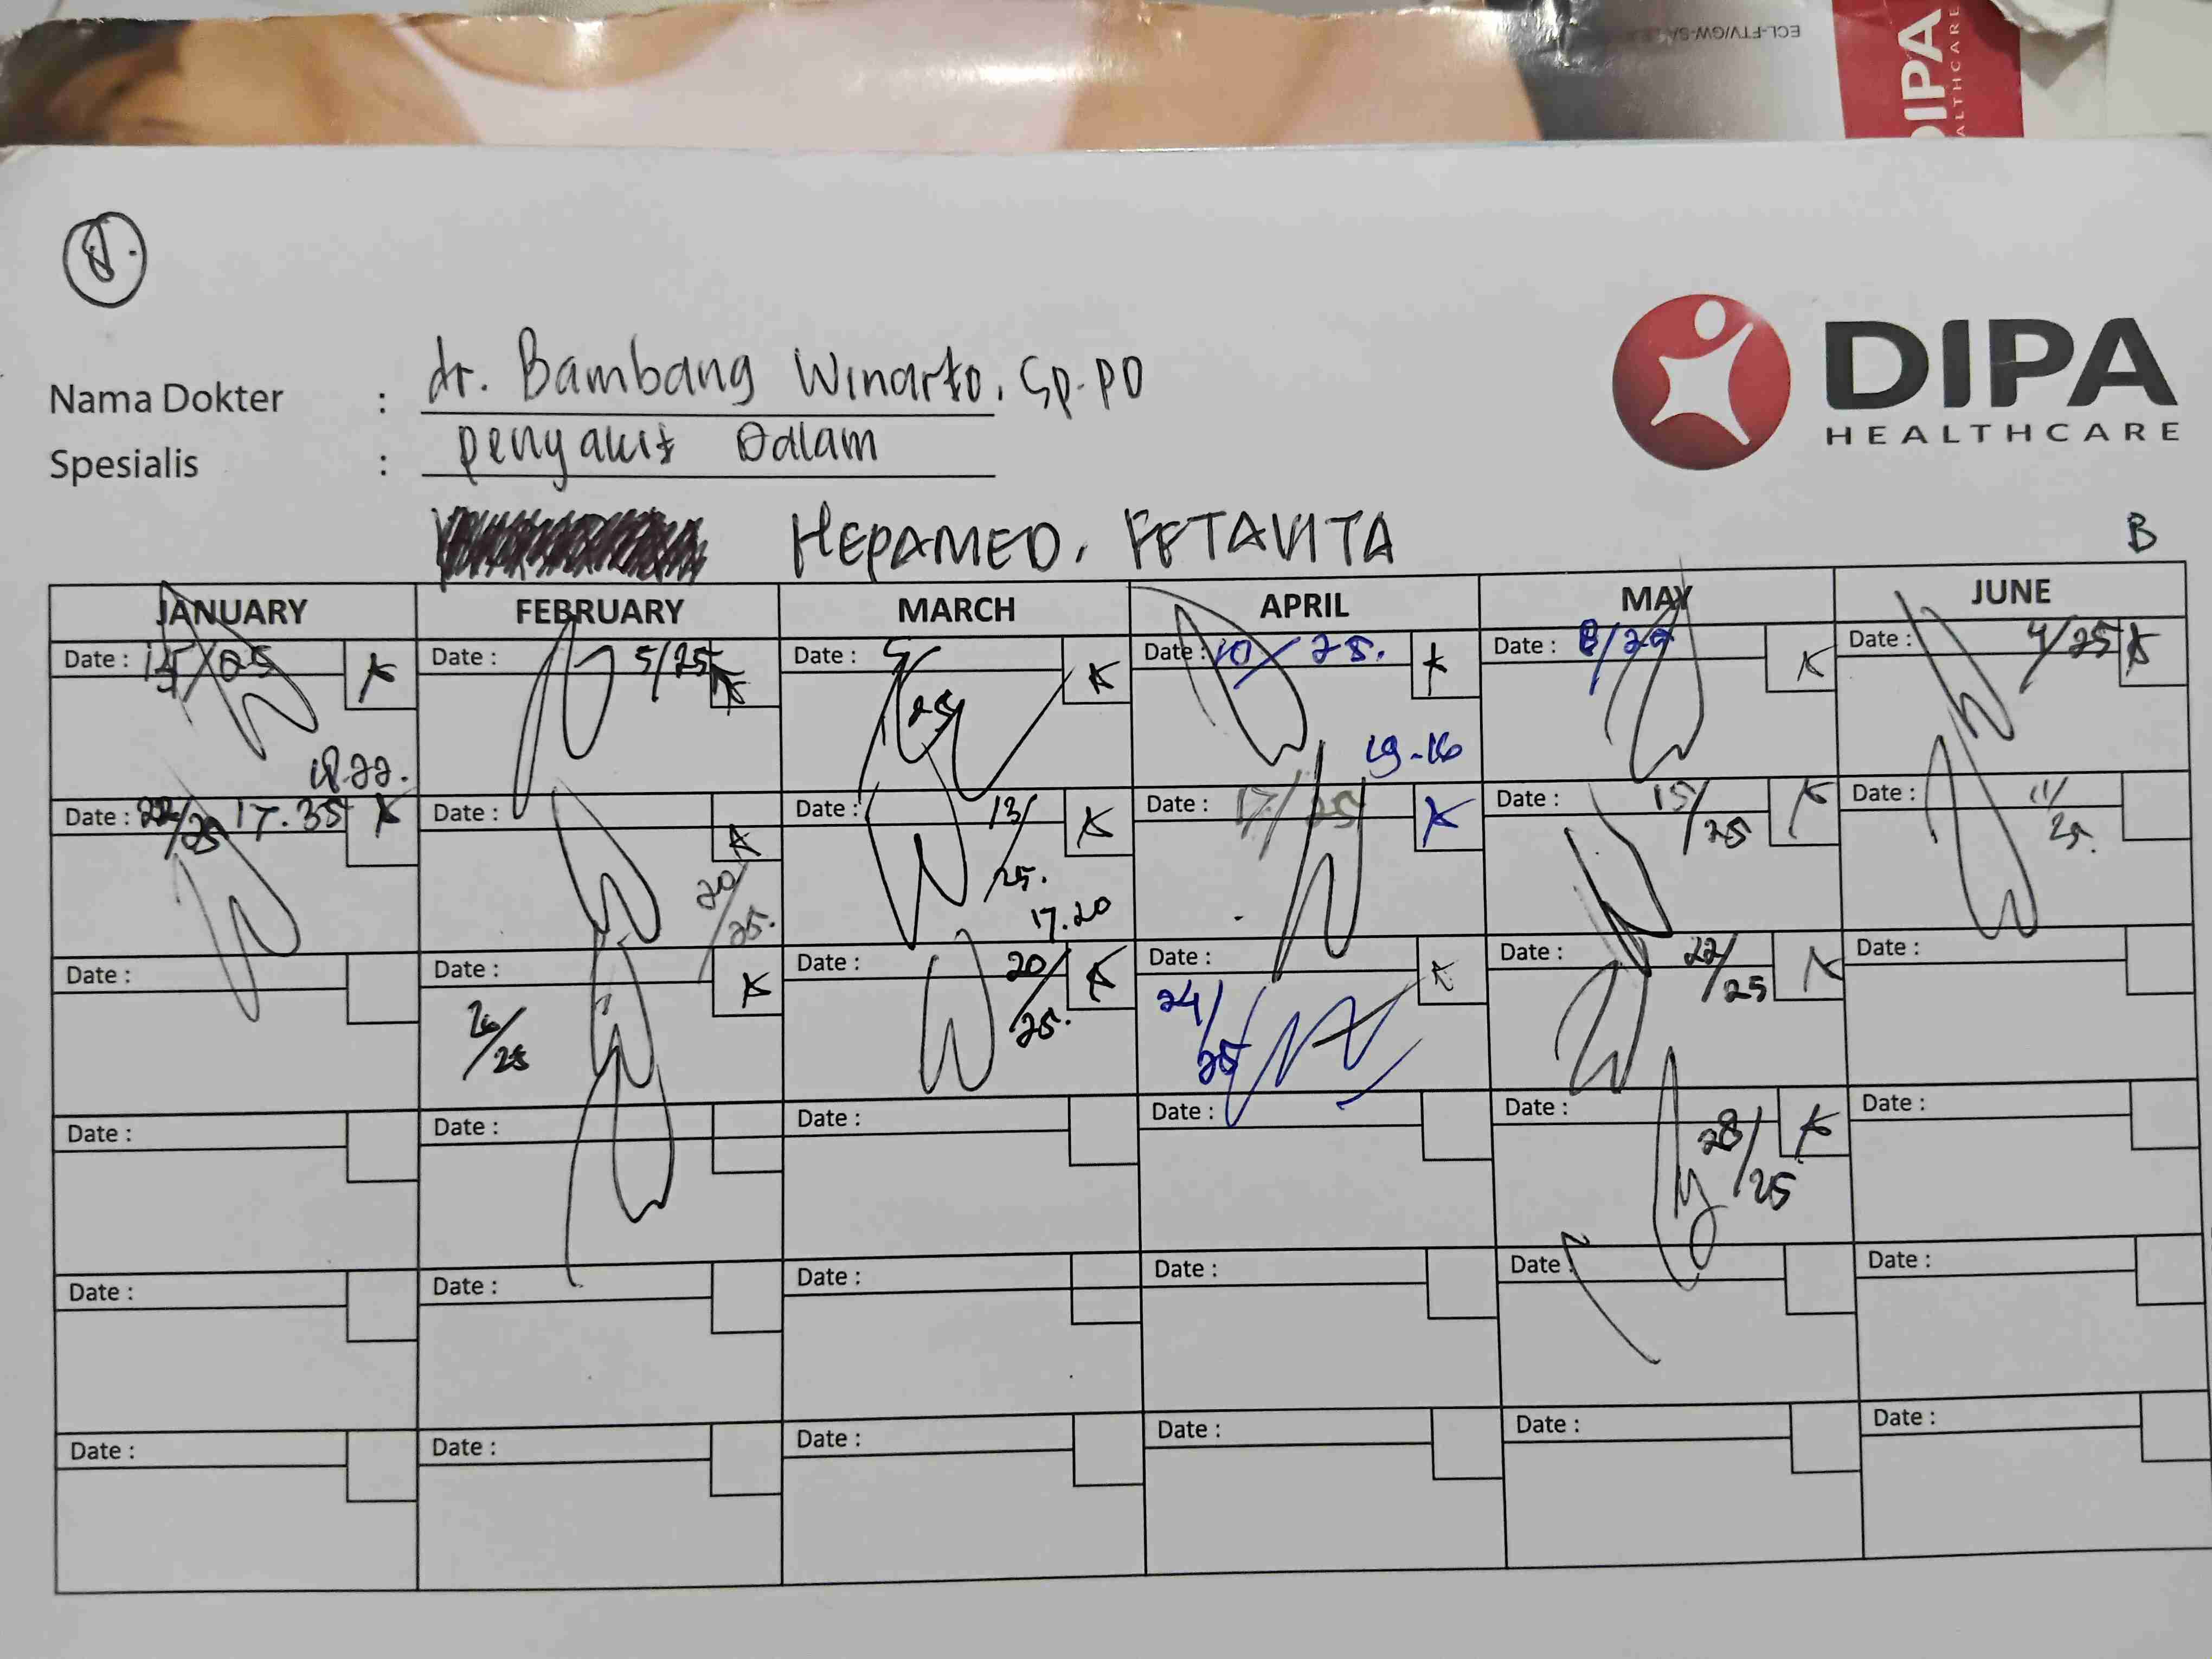 ECL-FTV/GW-SA
DIPA
HEALTHCARE
Nama Dokter : dr. Bambang Winarto, Sp.PD
Spesialis : Penyakit Dalam
DIPA
HEALTHCARE
HEPAMED, FETAVITA
B
JANUARY FEBRUARY MARCH APRIL MAY JUNE
Date : 15/25 Date : 5/25 Date : 5/25 Date : 10/25. Date : 8/25 Date : 4/25
19-16
Date : 22/25 17.35 Date : 20/25. Date : 13/25. Date : 17/25 Date : 15/25 Date : 11/25.
17.20
Date : Date : 26/25 Date : 20/25. Date : 24/25 Date : 22/25 Date :
Date : Date : Date : Date : Date : 28/25 Date :
Date : Date : Date : Date : Date : Date :
Date : Date : Date : Date : Date : Date :